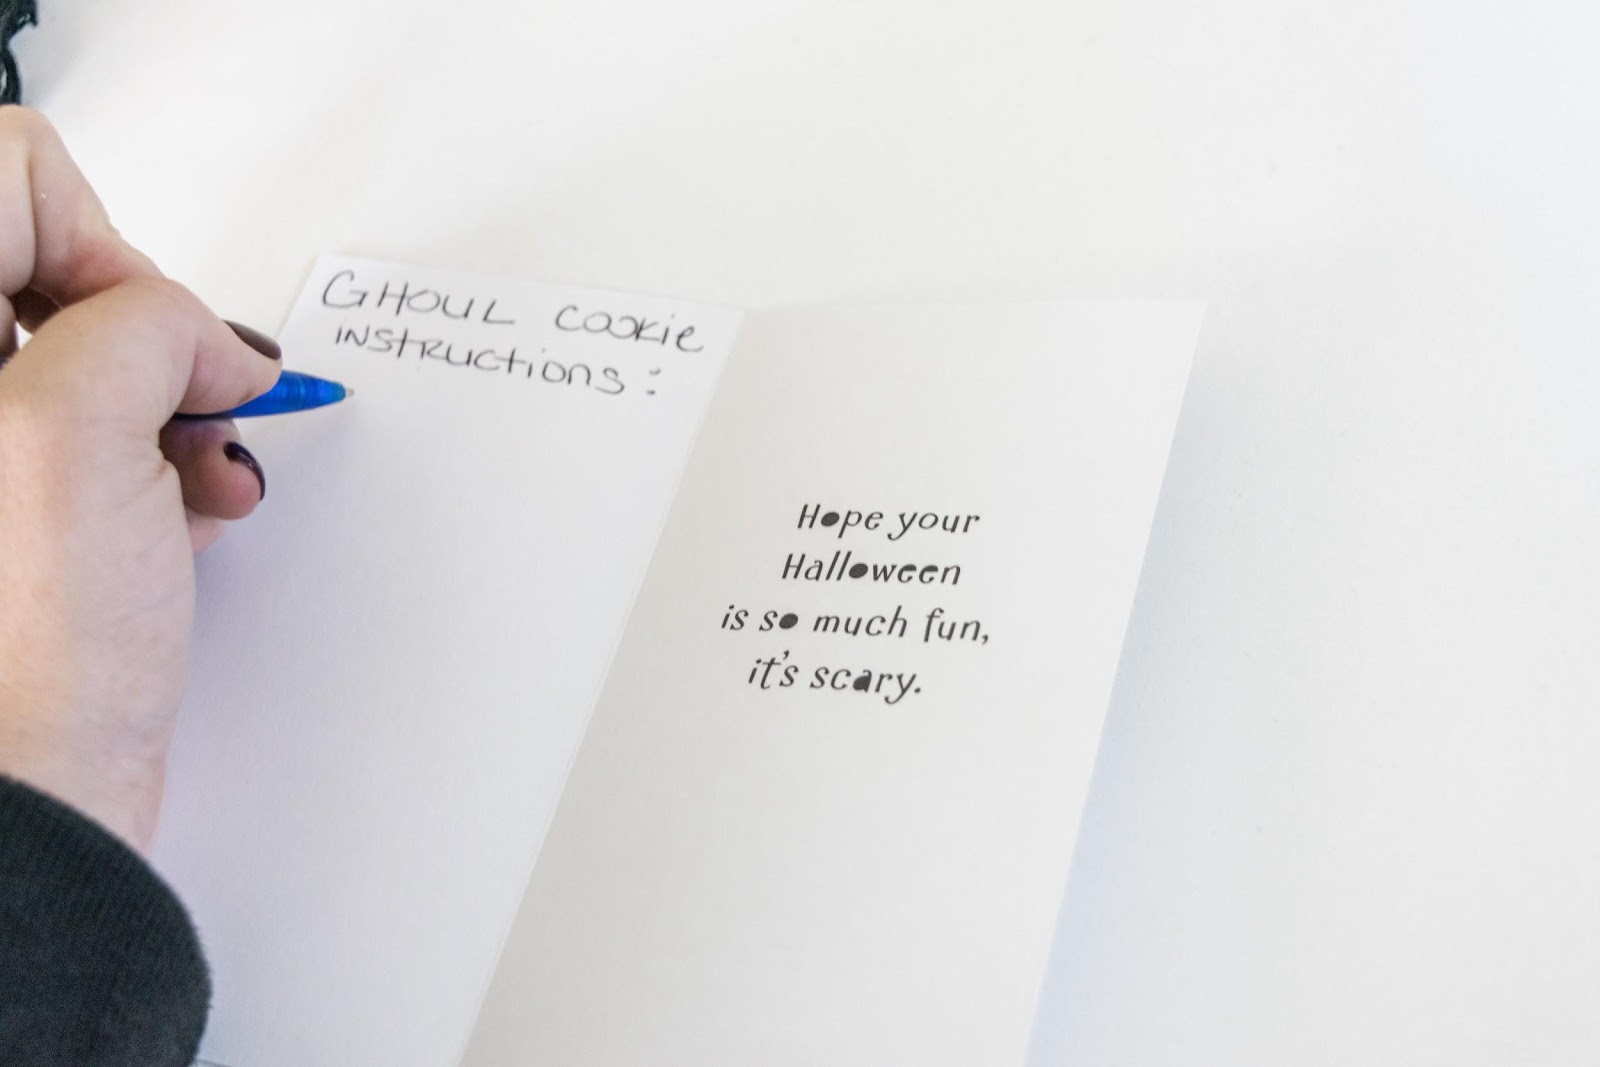 GHOUL cookie
instructions:
Hope your
Halloween
is so much fun,
it's scary.